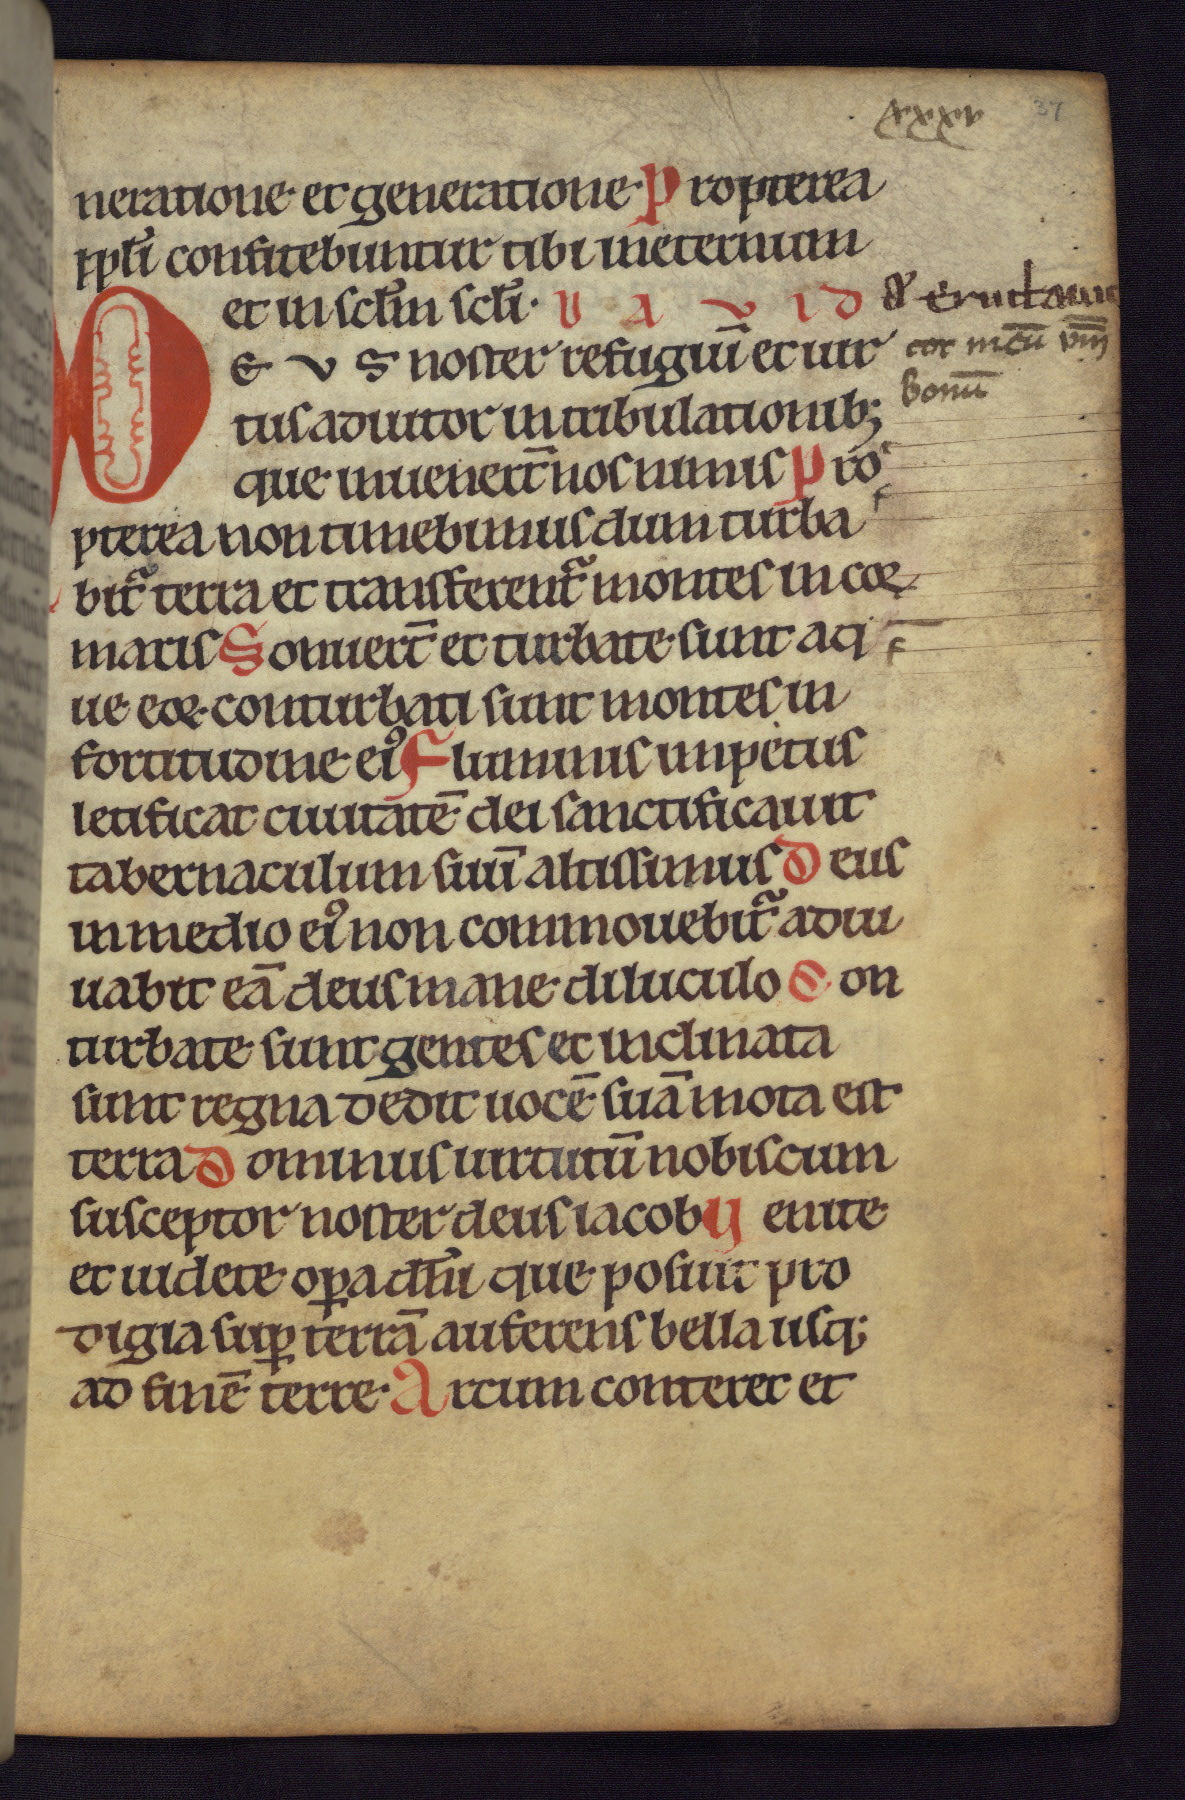 xxxv 37
neratione et generatione Propterea
ppłi confitebuntur tibi ineternum
et in scłm scłi. D A V I D & Eructauit
DEUS noster refugiū et uir cor meū ū̄m
tus adiutor in tribulationib; bonū
que inuenerūt nos nimis Pro
pterea non timebimus dum turba
bit᷑ terra et transferent᷑ montes in coꝛ
maris Sonuert̄ et turbate sunt aq̄
ue eoꝛ conturbati sunt montes in
fortitudine eiꝰ Fluminis impetus
letificat ciuitatē dei sanctificauit
tabernaculum suū altissimus Deus
in medio eiꝰ non commouebit᷑ adiu
uabit eā deus mane diluculo Con
turbate sunt gentes et inclinata
sunt regna dedit uocē suā mota est
terra Dominus uirtutū nobiscum
susceptor noster deus iacob Uenite
et uidete oꝑa dñi que posuit pro
digia suꝑ terrā auferens bella usq;
ad finē terre Arcum conteret et